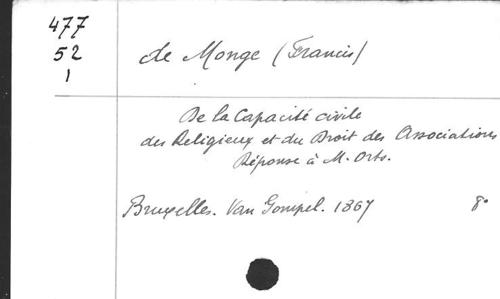 477
52
1
de Monge (Francis)
De la Capacité civile
des Religieux et du Droit des Associations
Réponse à M. Orts.
Bruxelles. Van Gompel. 1867 8°